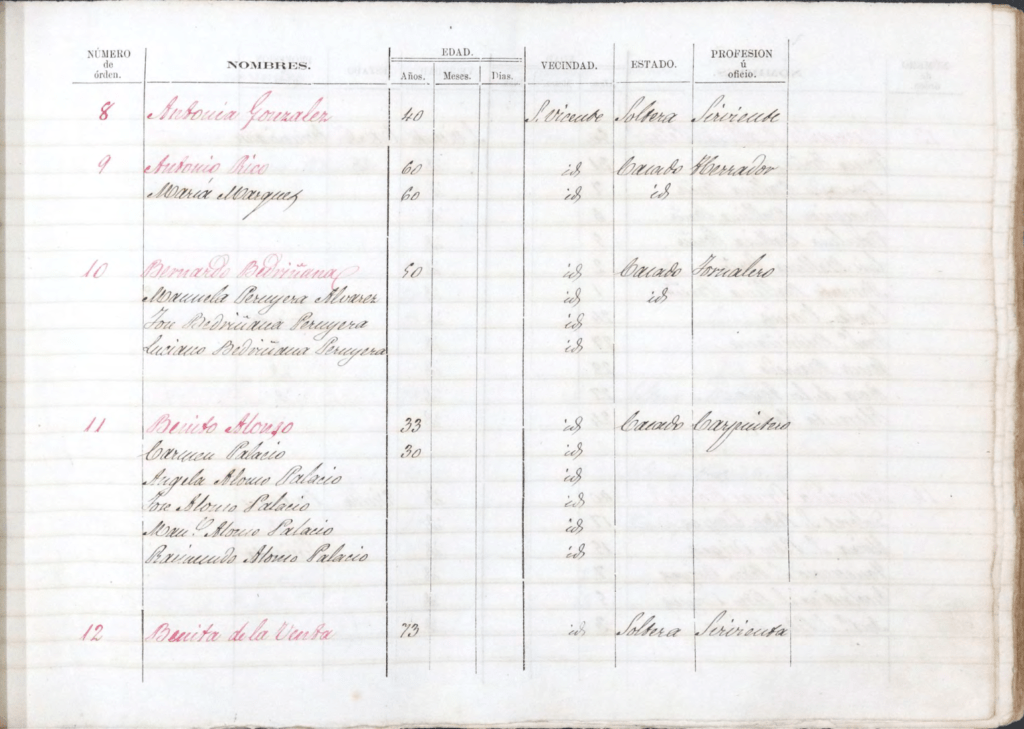 NÚMERO de órden. NOMBRES. EDAD. Años. Meses. Dias. VECINDAD. ESTADO. PROFESION ú oficio.
8 Antonia Gonzalez 40 S. Vicente Soltera Sirviente
9 Antonio Rico 60 id Casado Herrador
Maria Marques 60 id id
10 Bernardo Bedriñana 50 id Casado Jornalero
Manuela Peruyera Alvarez id id
Jose Bedriñana Peruyera id
Luciano Bedriñana Peruyera id
11 Benito Alonso 33 id Casado Carpintero
Carmen Palacio 30 id
Angela Alonso Palacio id
Jose Alonso Palacio id
Man.l Alonso Palacio id
Raimundo Alonso Palacio id
12 Benita de la Venta 73 id Soltera Sirvienta